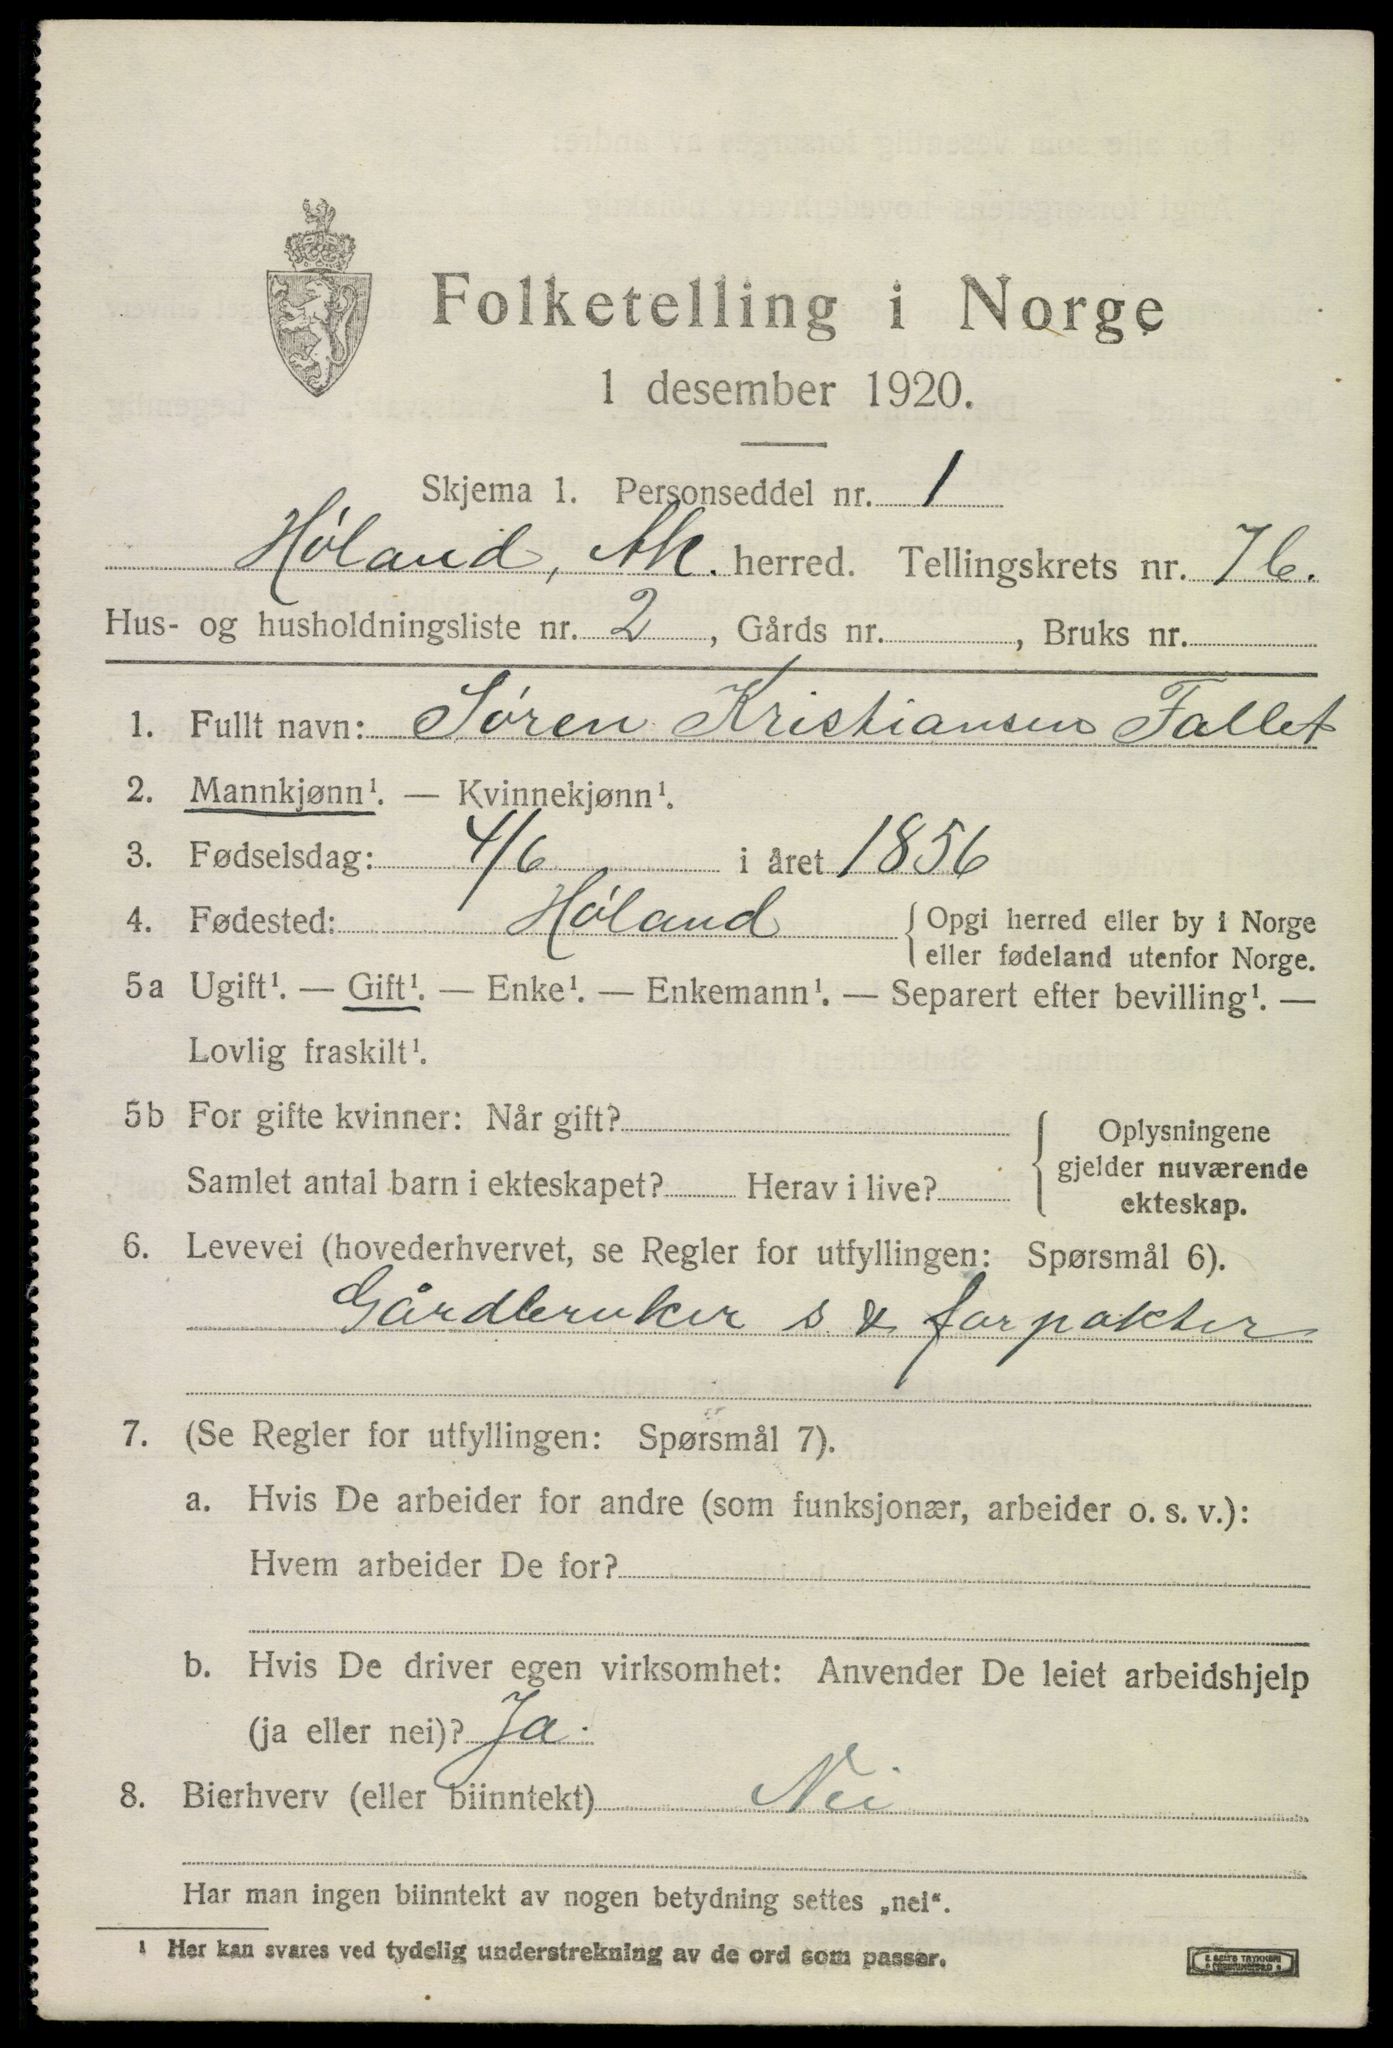 Folketelling i Norge
1 desember 1920.
Skjema 1. Personseddel nr. 1
Høland, Ak. herred. Tellingskrets nr. 7b.
Hus- og husholdningsliste nr. 2, Gårds nr. , Bruks nr.
1. Fullt navn: Søren Kristiansen Fallet
2. Mannkjønn¹. — Kvinnekjønn¹.
3. Fødselsdag: 4/6 i året 1856
4. Fødested: Høland { Opgi herred eller by i Norge
eller fødeland utenfor Norge.
5a Ugift¹. — Gift¹. — Enke¹. — Enkemann¹. — Separert efter bevilling¹. —
Lovlig fraskilt¹.
5b For gifte kvinner: Når gift?
Samlet antal barn i ekteskapet? Herav i live?
{ Oplysningene
gjelder nuværende
ekteskap.
6. Levevei (hovederhvervet, se Regler for utfyllingen: Spørsmål 6).
Gårdbruker s & forpakter
7. (Se Regler for utfyllingen: Spørsmål 7).
a. Hvis De arbeider for andre (som funksjonær, arbeider o. s. v.):
Hvem arbeider De for?
b. Hvis De driver egen virksomhet: Anvender De leiet arbeidshjelp
(ja eller nei)? Ja.
8. Bierhverv (eller biinntekt) Nei
Har man ingen biinntekt av nogen betydning settes „nei“.
¹ Her kan svares ved tydelig understrekning av de ord som passer.